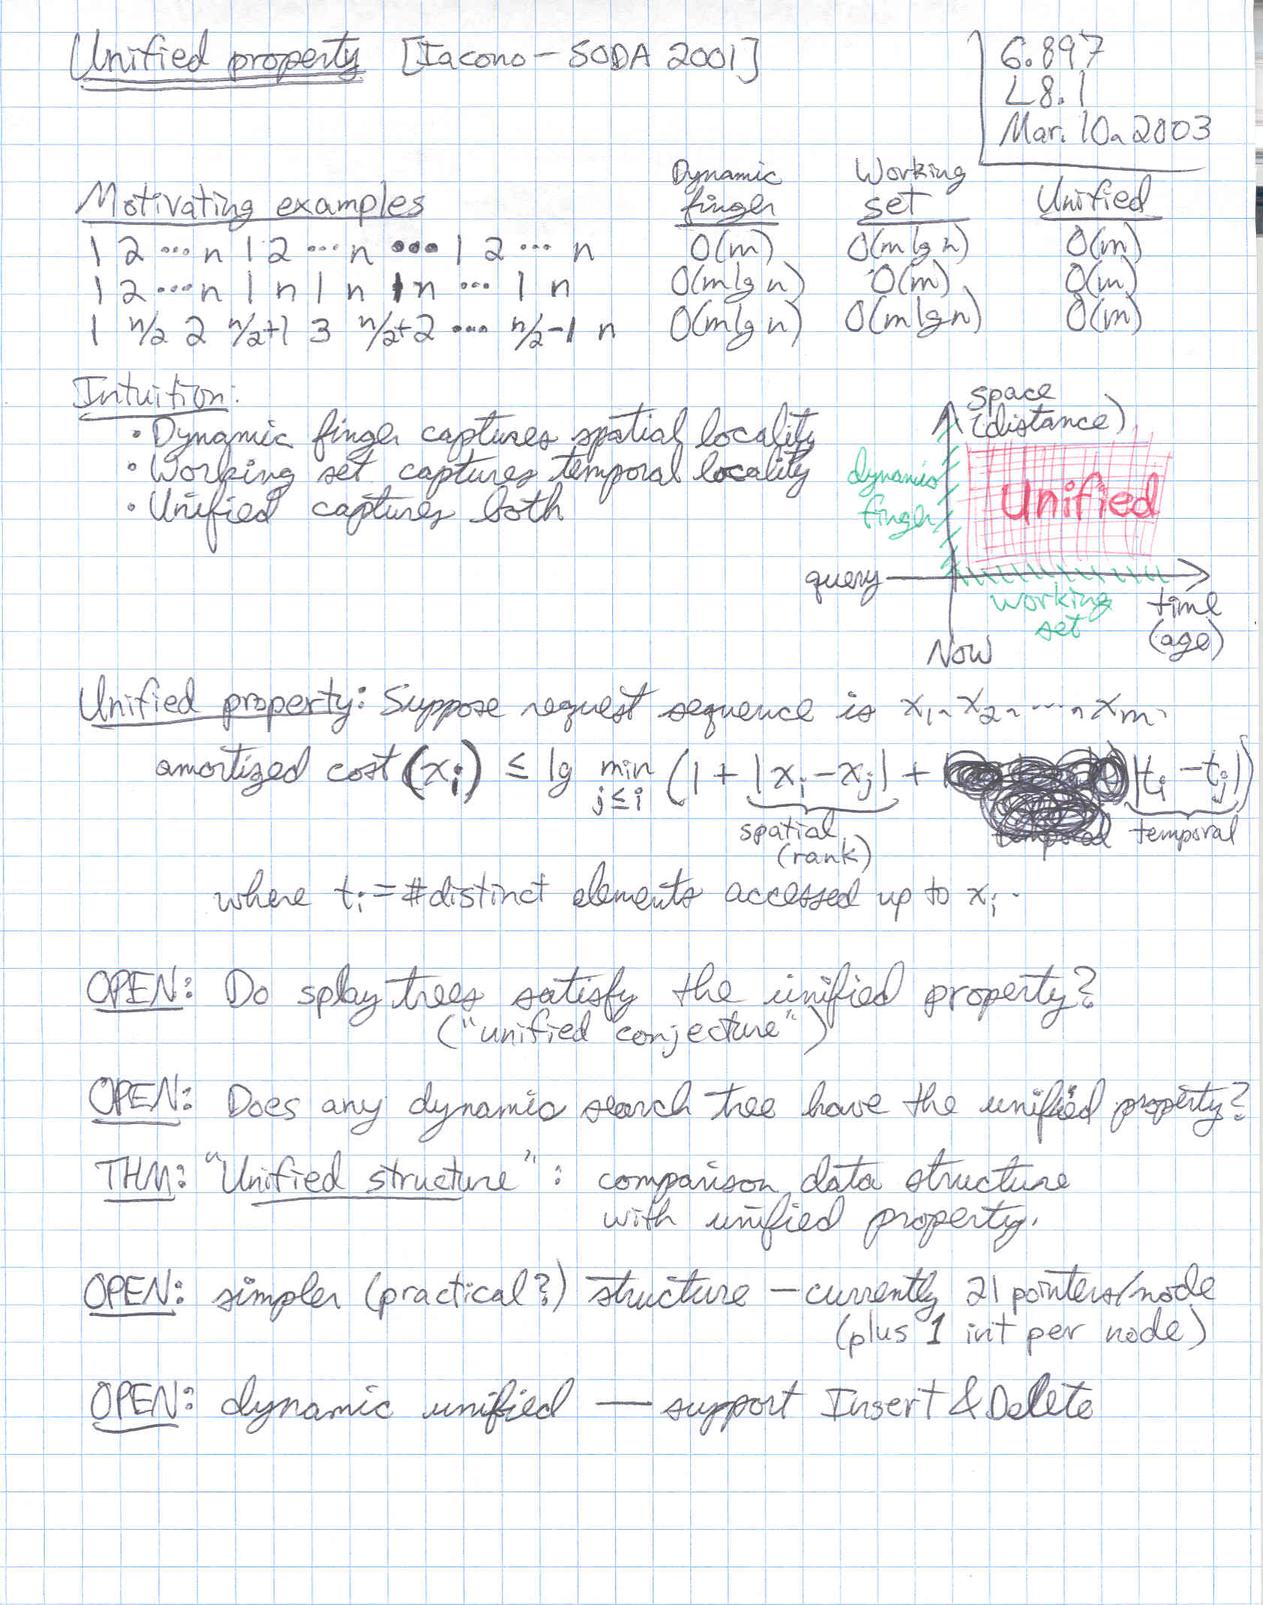 Unified property [Iacono - SODA 2001]
6.897
L8.1
Mar. 10, 2003
Motivating examples
Dynamic finger
Working set
Unified
1 2 ... n 1 2 ... n ... 1 2 ... n O(m) O(m lg n) O(m)
1 2 ... n 1 n 1 n 1 n ... 1 n O(m lg n) O(m) O(m)
1 n/2 2 n/2+1 3 n/2+2 ... n/2-1 n O(m lg n) O(m lg n) O(m)
Intuition:
• Dynamic finger captures spatial locality
• Working set captures temporal locality
• Unified captures both
space
(distance)
dynamic
finger
Unified
query
working
set
time
(age)
Now
Unified property: Suppose request sequence is x₁, x₂, ..., xₘ.
amortized cost (xᵢ) ≤ lg min (1 + |xᵢ - xⱼ| + |tᵢ - tⱼ|)
j≤i
spatial
(rank)
temporal
temporal
where tᵢ = # distinct elements accessed up to xᵢ.
OPEN: Do splay trees satisfy the unified property?
("unified conjecture")
OPEN: Does any dynamic search tree have the unified property?
THM: "Unified structure": comparison data structure
with unified property.
OPEN: simpler (practical?) structure — currently 21 pointers/node
(plus 1 int per node)
OPEN: dynamic unified — support Insert & Delete